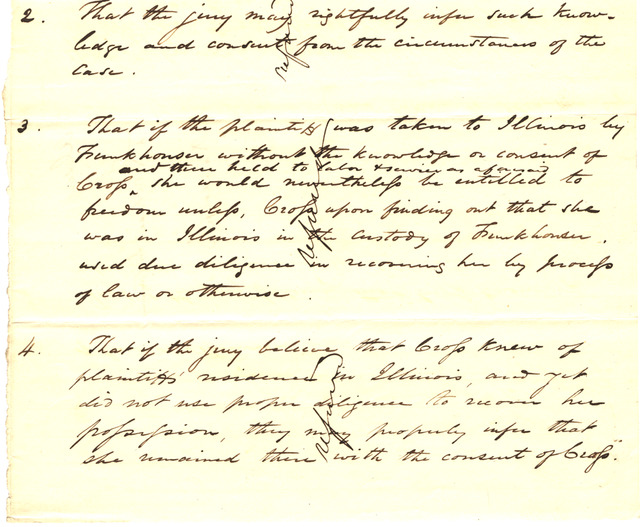 2. That the jury may rightfully infer such know-
ledge and consent from the circumstances of the
case.
refused
3. That if the plaintiff was taken to Illinois by
Funkhouser without the knowledge or consent of
and there held to labor & service as aforesaid
Cross, she would nevertheless be entitled to
freedom unless, Cross upon finding out that she
was in Illinois in the custody of Funkhouser,
used due diligence in recovering her by process
of law or otherwise.
refused
4. That if the jury believe that Cross knew of
plaintiffs' residence in Illinois, and yet
did not use proper diligence to recover her
possession, they may properly infer that
she remained there with the consent of Cross."
refused